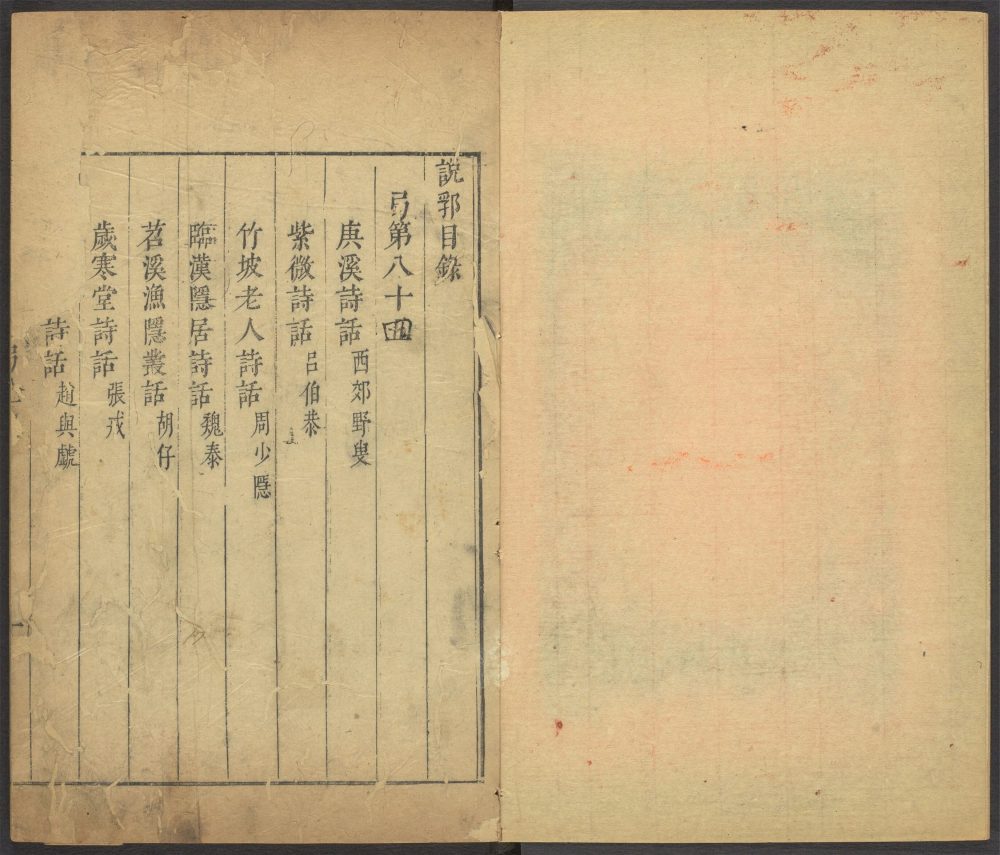 説郛目錄
弓第八十四
庚溪詩話 西郊野叟
紫微詩話 吕伯恭
竹坡老人詩話 周少隱
臨漢隱居詩話 魏泰
苕溪漁隱叢話 胡仔
歲寒堂詩話 張戎
詩話 趙與虤
一